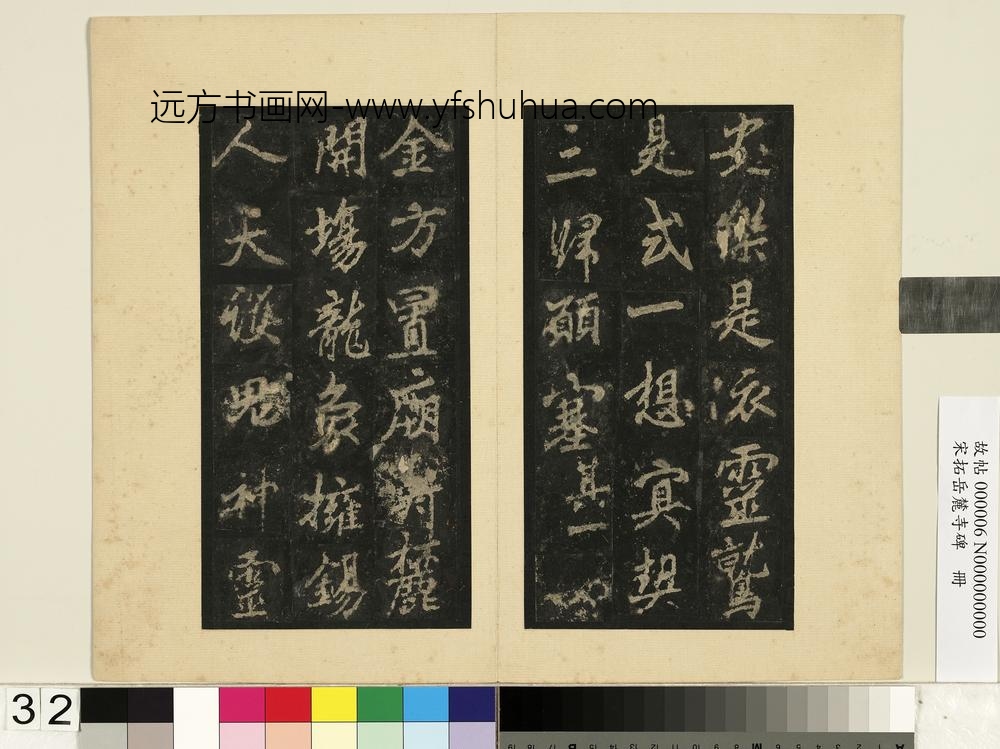 远方书画网-www.yfshuhua.com
傑是依靈鷲
見式一想冥契
三歸願塞其一
金方置廟對麓
開場龍象擁錫
人天從鬼神靈
故帖 000006 N000000000
宋拓岳麓寺碑 冊
32